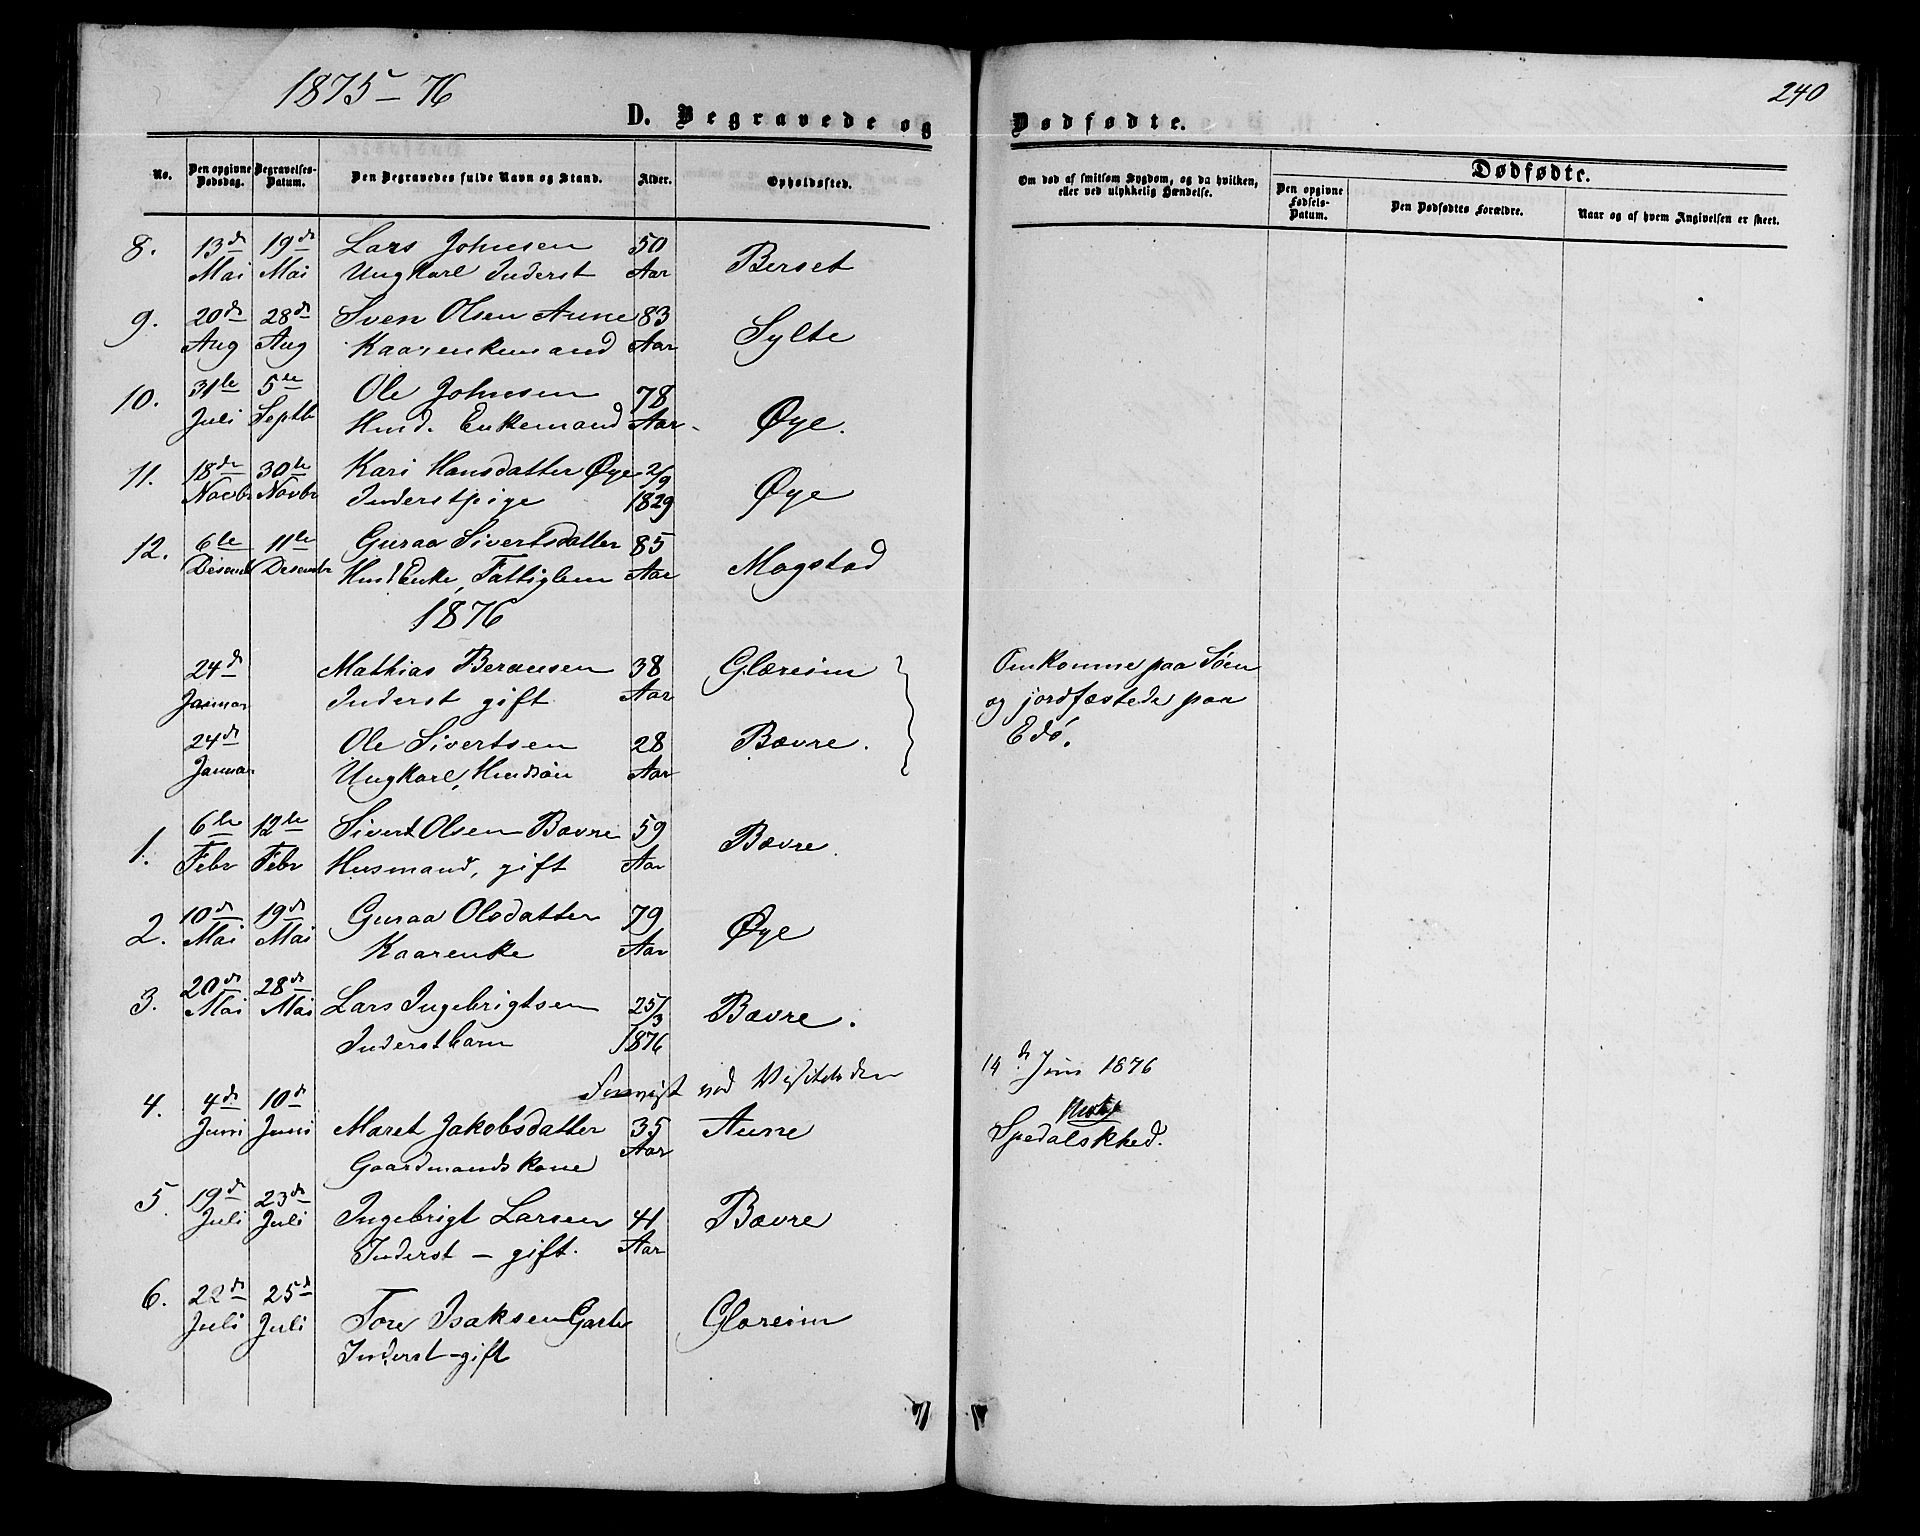 1875-76
240
D. Begravede og Dødfødte.
No.
Den opgivne Dødsdag.
Begravelses-Datum.
Den Begravedes fulde Navn og Stand.
Alder.
Opholdssted.
Om død af smitsom Sygdom, og da hvilken, eller ved ulykkelig Hændelse.
Dødfødte.
Den opgivne Fødsels-Datum.
Den Dødfødtes Forældre.
Naar og af hvem Angivelsen er skeet.
8. 13de 19de Lars Johnsen 50 Berset
Mai Mai Ungkarl Inderst Aar
9. 20de 28de Sven Olsen Aune 83 Sylte
Aug Aug Kaarenkemand Aar
10. 31te 5te Ole Johnsen 78 Øye.
Juli Septb Husd. Enkemand Aar
11. 18de 30te Kari Hansdatter Øye 2/9 Øye
Novbr Novbr Inderstpige 1829
12. 6te 11te Guraa Sivertsdatter 85 Magstad
Desemb Desembr Husd Enke, Fattiglem Aar
1876
24d Mathias Berausen 38 Glæreim Omkomne paa Søen
Januar Inderst gift Aar og jordfæstede paa
24d Ole Sivertsen 28 Bævre. Edø.
Januar Ungkarl, Husdsøn Aar
1. 6te 12te Sivert Olsen Bævre 59 Bævre.
Febr Febr Husmand, gift Aar
2. 10d 19d Guraa Olsdatter 79 Øye
Mai Mai Kaarenke Aar
3. 20d 28d Lars Ingebrigtsen 25/3 Bævre.
Mai Mai Inderstbarn 1876
Forevist ved Visitatsen 14d Juni 1876
4. 4d 10d Maret Jakobsdatter 35 Aune Spedalskhed.
Juni Juni Gaardmandskone Aar
5. 19d 23d Ingebrigt Larsen 41 Bævre
Juli Juli Inderst - gift. Aar
6. 22d 25d Tore Isaksen Garte Glæreim
Juli Juli Inderst-gift